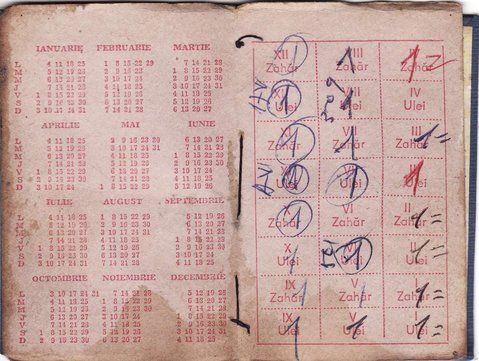 IANUARIE FEBRUARIE MARTIE
L 4 11 18 25 1 8 15 22 29 7 14 21 28
M 5 12 19 26 2 9 16 23 1 8 15 22 29
M 6 13 20 27 3 10 17 24 2 9 16 23 30
J 7 14 21 28 4 11 18 25 3 10 17 24 31
V 1 8 15 22 29 5 12 19 26 4 11 18 25
S 2 9 16 23 30 6 13 20 27 5 12 19 26
D 3 10 17 24 31 7 14 21 28 6 13 20 27
APRILIE MAI IUNIE
L 4 11 18 25 2 9 16 23 30 6 13 20 27
M 5 12 19 26 3 10 17 24 31 7 14 21 28
M 6 13 20 27 4 11 18 25 1 8 15 22 29
J 7 14 21 28 5 12 19 26 2 9 16 23 30
V 1 8 15 22 29 6 13 20 27 3 10 17 24
S 2 9 16 23 30 7 14 21 28 4 11 18 25
D 3 10 17 24 1 8 15 22 29 5 12 19 26
IULIE AUGUST SEPTEMBRIE
L 4 11 18 25 1 8 15 22 29 5 12 19 26
M 5 12 19 26 2 9 16 23 30 6 13 20 27
M 6 13 20 27 3 10 17 24 31 7 14 21 28
J 7 14 21 28 4 11 18 25 1 8 15 22 29
V 1 8 15 22 29 5 12 19 26 2 9 16 23 30
S 2 9 16 23 30 6 13 20 27 3 10 17 24
D 3 10 17 24 31 7 14 21 28 4 11 18 25
OCTOMBRIE NOIEMBRIE DECEMBRIE
L 3 10 17 24 31 7 14 21 28 5 12 19 26
M 4 11 18 25 1 8 15 22 29 6 13 20 27
M 5 12 19 26 2 9 16 23 30 7 14 21 28
J 6 13 20 27 3 10 17 24 1 8 15 22 29
V 7 14 21 28 4 11 18 25 2 9 16 23 30
S 1 8 15 22 29 5 12 19 26 3 10 17 24 31
D 2 9 16 23 30 6 13 20 27 4 11 18 25
XII VIII
Zahăr Zahăr Zahăr
1 1 1
IV
Ulei Ulei Ulei
1 1
XI III
Zahăr Zahăr Zahăr
1 1 1=
Ulei Ulei Ulei
1 1 1
X VI II
Zahăr Zahăr Zahăr
1 1=
X II
Ulei Ulei Ulei
1 1 1=
IX V I
Zahăr Zahăr Zahăr
1 1 1=
IX V I
Ulei Ulei Ulei
1 1 1=